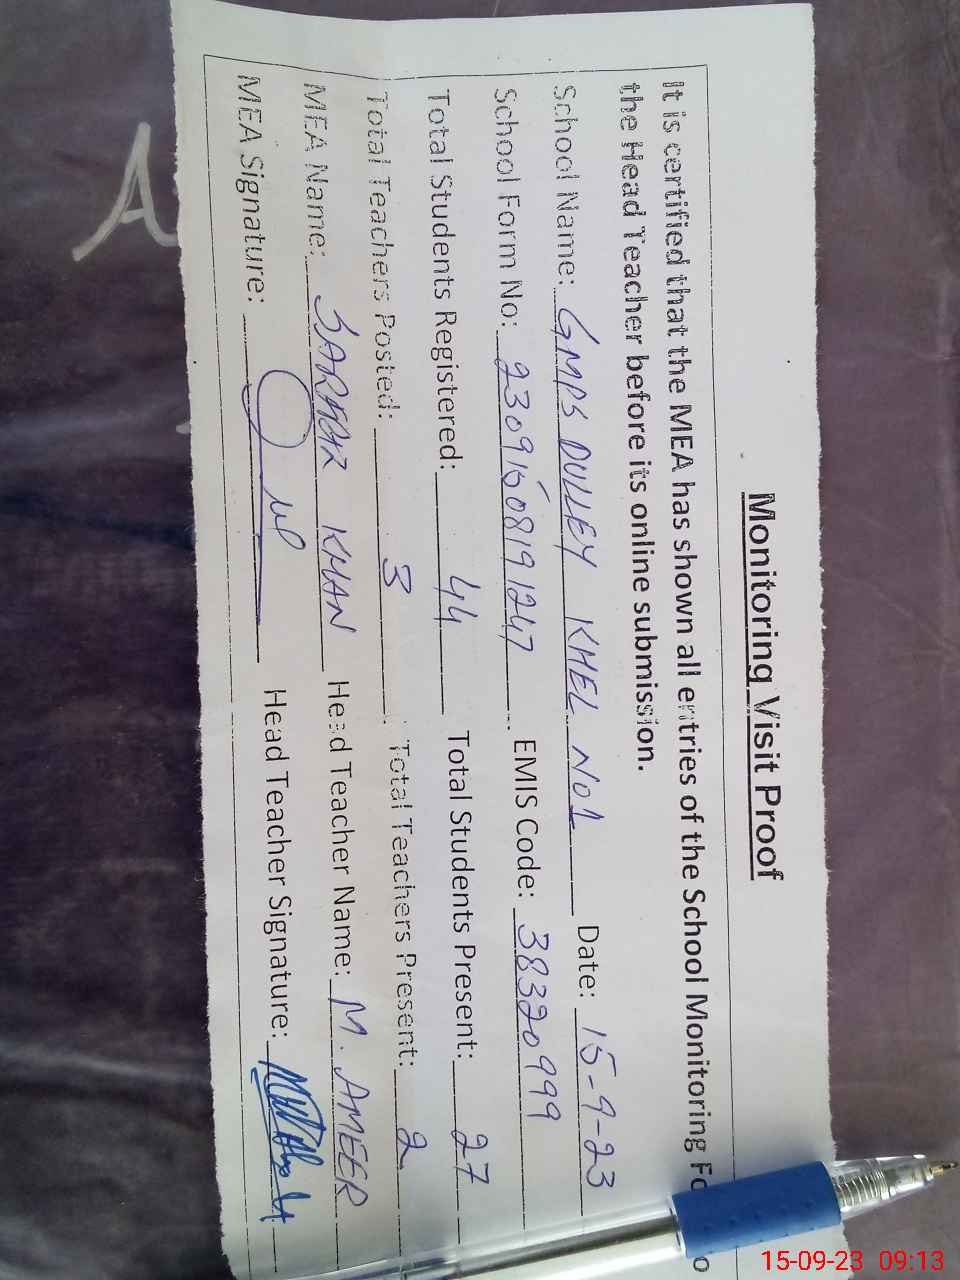 Monitoring Visit Proof
It is certified that the MEA has shown all entries of the School Monitoring Fo
the Head Teacher before its online submission.
School Name: GMPS DULLEY KHEL NO1 Date: 15-9-23
School Form No: 23091508191247 EMIS Code: 38320999
Total Students Registered: 44 Total Students Present: 27
Total Teachers Posted: 3 Total Teachers Present: 2
MEA Name: SARFARAZ KHAN Head Teacher Name: M. AMEER
MEA Signature: Head Teacher Signature:
A
15-09-23 09:13